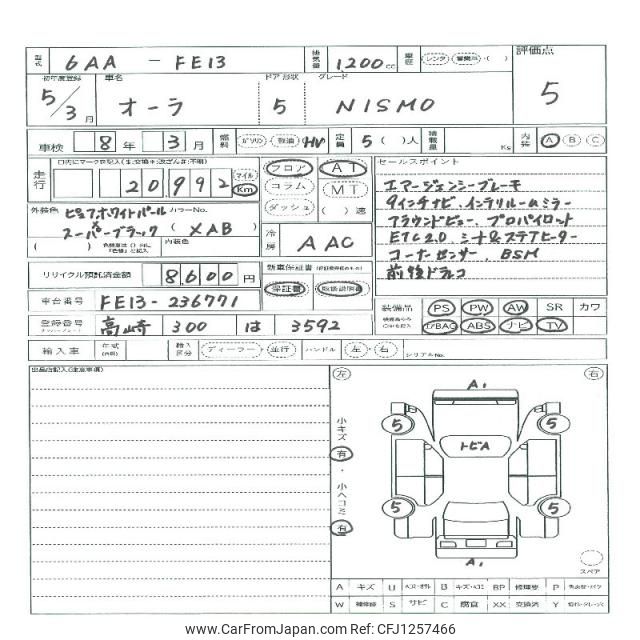 型式 6AA - FE13 排気量 1200cc 車歴 レンタ・営業用・( ) 評価点
初年度登録 5/3月 車名 オーラ ドア 形状 5 グレード NISMO 5
車検 8年 3月 燃料 ガソリン・軽油・HV 定員 5( )人 積載量 Ks 内装 A B C
走行 20,992 マイル Km フロア コラム ダッシュ AT MT ( )速
セールスポイント
エマージェンシーブレーキ
9インチナビ、インテリルームミラー
アラウンドビュー、プロパイロット
ETC2.0、シート&ステアヒーター
コーナーセンサー、BSM
前後ドラレコ
外装色 ピュアホワイトパール カラーNo.
× スーパーブラック (XAB)
( ) 内装色
冷房 AAC
リサイクル預託済金額 8,600円 新車保証書
保証書・取扱説明書
車台番号 FE13-236771
登録番号 高崎 300 は 3592
装備品 PS PW AW SR カワ
エアBAG ABS ナビ TV
輸入車 年式 輸入区分 ディーラー・並行 ハンドル 左・右 シリアルNo.
出品店記入(注意事項)
左 右
A1
5 5
トビA
小キズ 有・小ヘコミ 有
5 5
A1
スペア
A キズ U B キズ・ヘコミ BP 修理要 P
W 補修跡 S サビ C 腐食 XX 交換済 Y
www.CarFromJapan.com - Ref:CFJ1257466